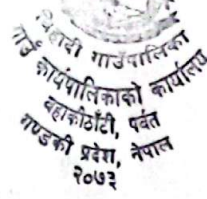 बिहादी गाउँपालिका
गाउँ कार्यपालिकाको कार्यालय
बहाकीठाँटी, पर्वत
गण्डकी प्रदेश, नेपाल
२०७३